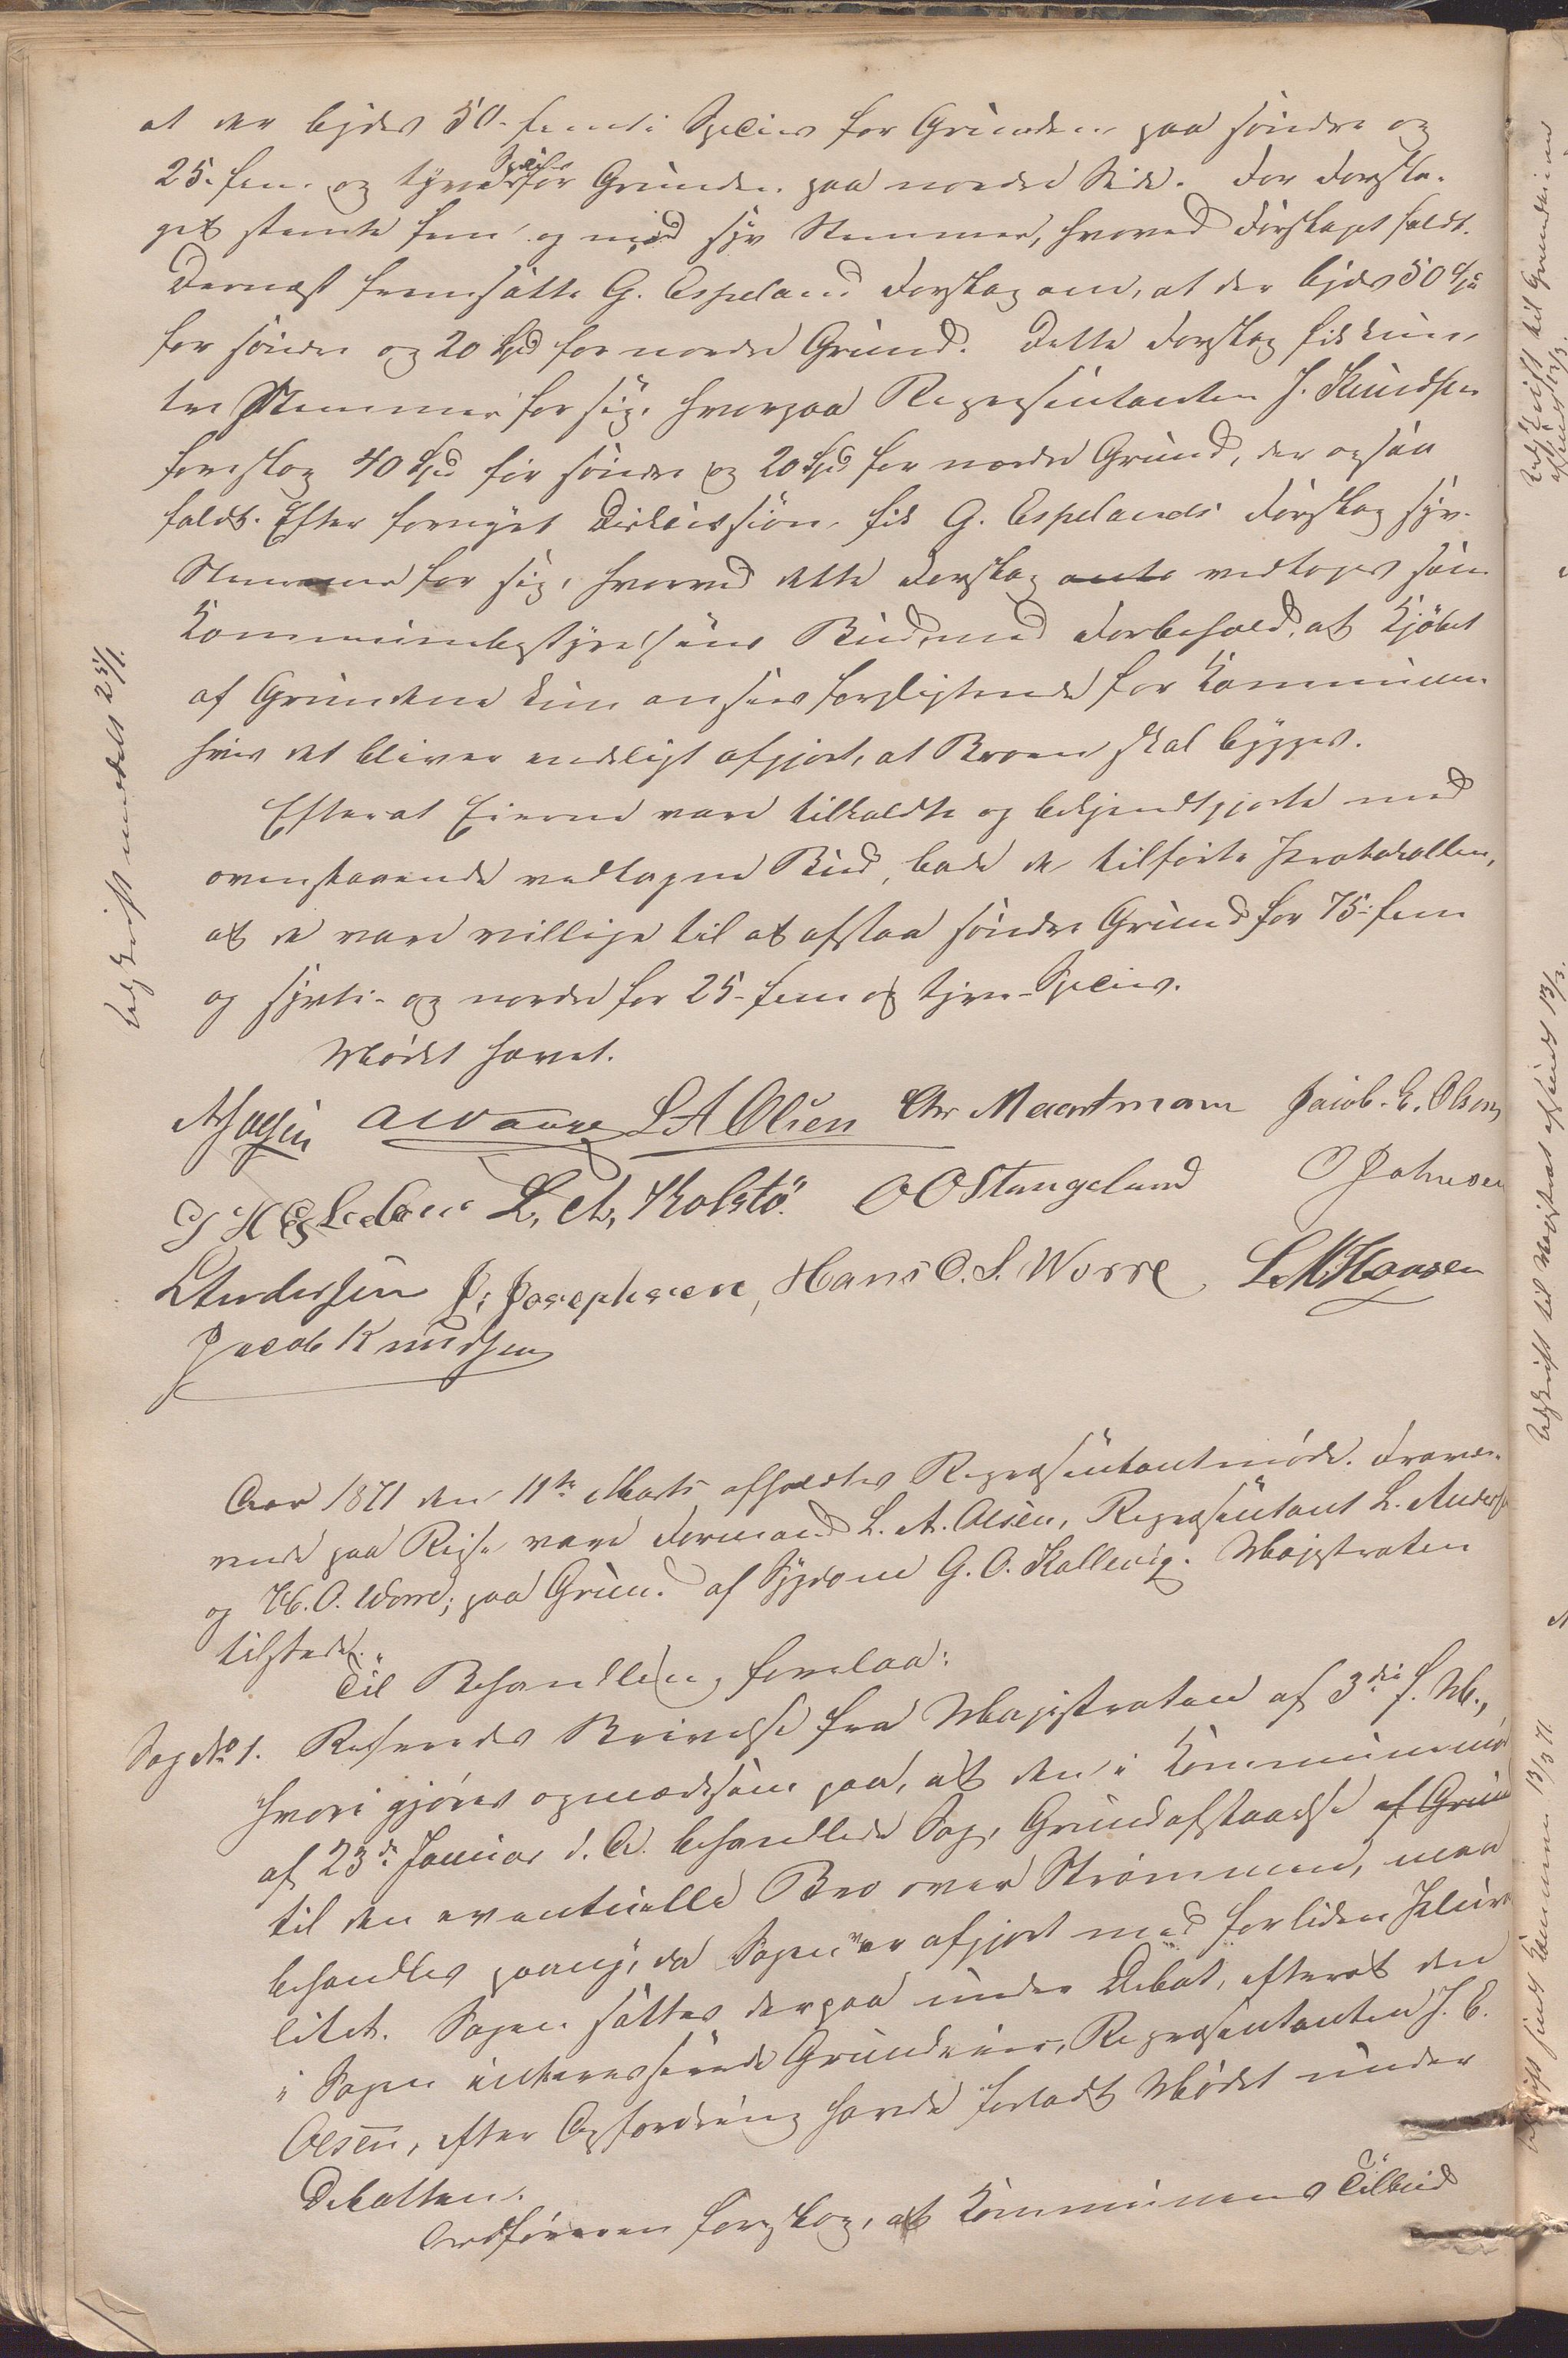 at der bydes 50- femti Species for Grunden paa søndre og
25- fem- og tyve Species for Grunden paa nordre Side. For Forsla-
get stemte fem og mod syv Stemmer, hvorved Forslaget faldt.
Dernæst fremsatte G. Espeland Forslag om, at der bydes 50 Spd
for søndre og 20 Spd for nordre Grund. Dette Forslag fik kun
tre Stemmer for sig, hvorpaa Repræsentanten J. Knudsen
foreslog 40 Spd for søndre og 20 Spd for nordre Grund, der ogsaa
faldt. Efter fornyet Diskussion fik G. Espelands Forslag syv
Stemmer for sig, hvorved dette Forslag vedtoges som
Kommunebestyrelsens Bud, med Forbehold, at Kjøbet
af Grundene kun ansees forpligtende for Kommunen
hvis det bliver endeligt afgjort, at Broen skal bygges.
Efterat Eierne vare tilkaldte og bekjendtgjorte med
ovenstaaende vedtagne Bud, bade de tilførte Protokollen,
at de vare villige til at afstaa søndre Grund for 75- fem
og sytti- og nordre for 25- fem og tyve- Species.
Mødet hævet.
L A Olsen Chr Maartmann Jacob. E. Olsen
L. A. Kolstö. O O Stangeland O Johnsen
L Andersen J. Josephsen, Hans O. S. Worre L. M. Hansen
Jacob Knudsen
Udskrift meddelt 25/1.
Aar 1871 den 11te Marts afholdtes Repræsentantmøde. Fravæ-
rende paa Reise vare Formand L. A. Olsen, Repræsentant L. Anders
og H. O. Worre; paa Grund af Sygdom G. O. Kallevig. Magistraten
tilstede.
Til Behandling forelaa:
Sag No 1. Refereredes Skrivelse fra Magistraten af 3die f. M.,
hvori gjøres opmærksom paa, at den i Kommunemød
af 23de Januar d. A. behandlede Sag, Grundafstaaelse af Grun
til den eventuelle Bro over Strømmen, maa
behandles paany, da Sagen var afgjort med for liden Plura
litet. Sagen sattes derpaa under Debat, efterat den
i Sagen interesserede Grundeier, Repræsentanten J. E.
Olsen, efter Opfordring havde forladt Mødet under
Debatten.
Ordføreren foreslog, at Kommunens Tilbud
Udskrift til Grundeierne
Udskrift til Magistrat afsendt 13/3.
13/3 71